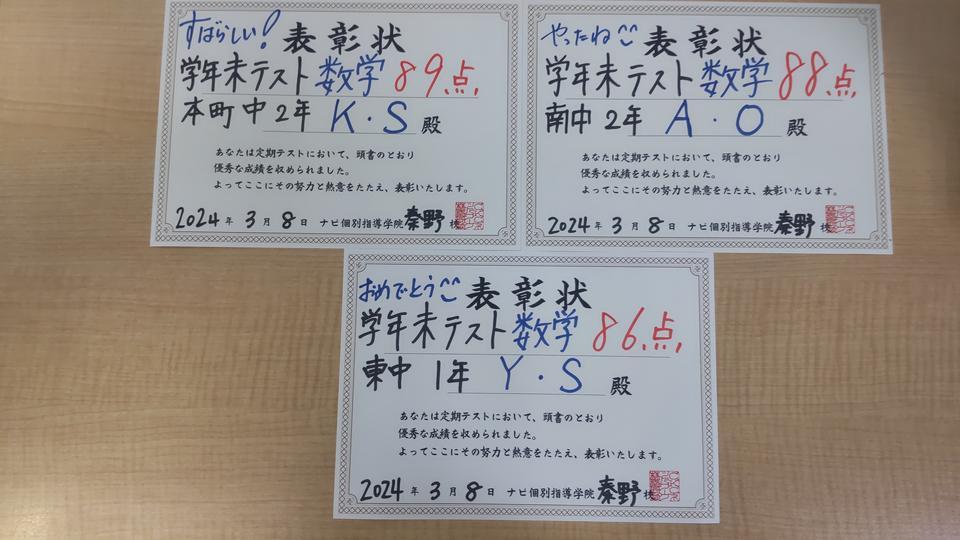 すばらしい！
表彰状
学年末テスト 数学 89点
本町中2年 K・S 殿
あなたは定期テストにおいて、頭書のとおり
優秀な成績を収められました。
よってここにその努力と熱意をたたえ、表彰いたします。
2024年 3月 8日 ナビ個別指導学院 秦野校
やったね
表彰状
学年末テスト 数学 88点
南中 2年 A・O 殿
あなたは定期テストにおいて、頭書のとおり
優秀な成績を収められました。
よってここにその努力と熱意をたたえ、表彰いたします。
2024年 3月 8日 ナビ個別指導学院 秦野校
おめでとう
表彰状
学年末テスト 数学 86点
東中 1年 Y・S 殿
あなたは定期テストにおいて、頭書のとおり
優秀な成績を収められました。
よってここにその努力と熱意をたたえ、表彰いたします。
2024年 3月 8日 ナビ個別指導学院 秦野校